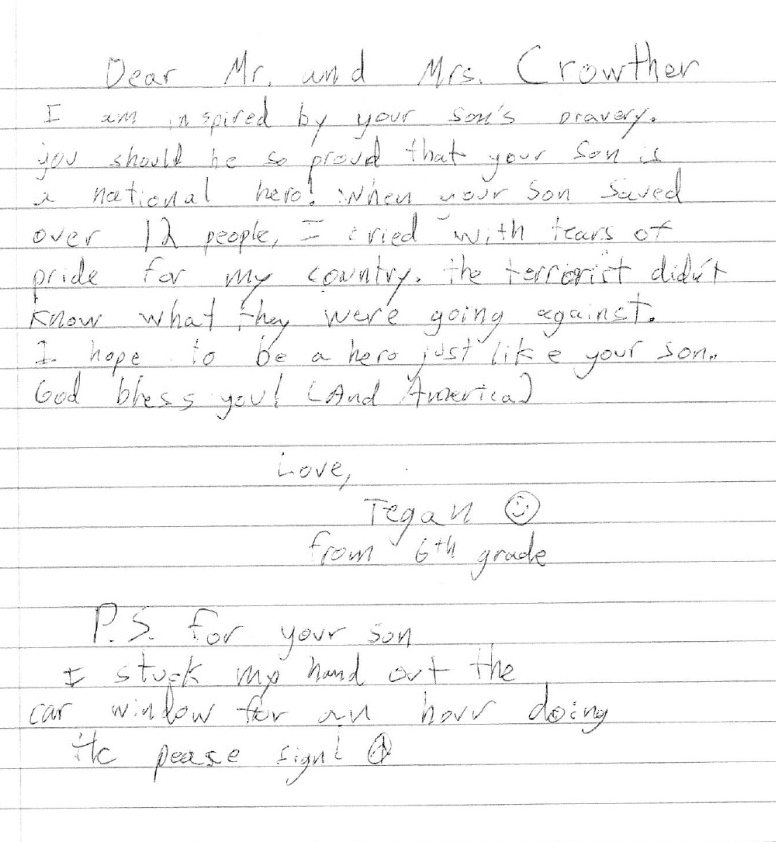 Dear Mr. and Mrs. Crowther
I am inspired by your son's bravery.
you should be so proud that your son is
a national hero! When your son saved
over 12 people, I cried with tears of
pride for my country. the terrorist didn't
know what they were going against.
I hope to be a hero just like your son.
God bless you! (And America)
Love,
Tegan
from 6th grade
P.S. for your son
I stuck my hand out the
car window for an hour doing
the pease sign!